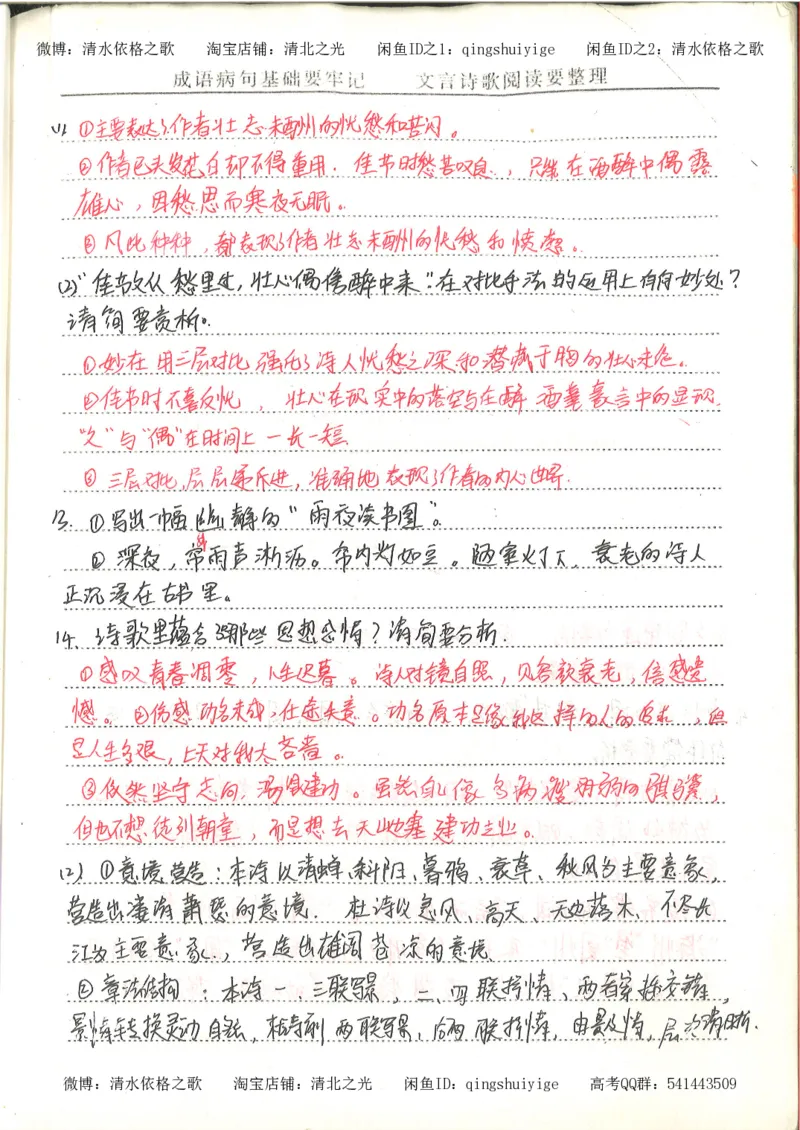 微博：清水依格之歌 淘宝店铺：清北之光 闲鱼ID之1：qingshuiyige 闲鱼ID之2：清水依格之歌
成语病句基础要牢记 文言诗歌阅读要整理
(1) ①主要表达了作者壮志未酬的忧愁和苦闷。
②作者已头发花白却不得重用，佳节时愁苦叹息，只能在酒醉中偶露
雄心，因愁思而寒夜无眠。
③凡此种种，都表现了作者壮志未酬的忧愁和愤懑。
(2)"佳节久从愁里过，壮心偶傍醉中来"在对比手法的应用上有何妙处？
请简要赏析。
①妙在用三层对比，强化了诗人忧愁之深和潜藏于胸的壮心未已。
②佳节时不喜反忧，壮心在现实中的落空与在醉酒豪言中的显现，
"久"与"偶"在时间上一长一短
③三层对比，层层递进，准确地表现了作者的内心世界.
13. ①写出一幅幽静的"雨夜读书图"。
②深夜，窗外雨声淅沥。室内灯如豆。陋室灯下，衰老的诗人
正沉浸在古书里。
14. 诗歌里蕴含了哪些思想感情？请简要分析.
①感叹青春凋零，人生迟暮。诗人对镜自照，见容颜衰老，倍感遗
憾。②伤感功名未成，仕途失意。功名原本是像我这样的人的追求，但
是人生多艰，上天对我太吝啬。
③依然坚守志向，渴望建功。虽然自己像多病瘦弱的骐骥，
但也不想徒列朝堂，而是想去天山绝塞建功立业。
(2) ①意境营造：本诗以清蝉、斜阳、暮鸦、衰草、秋风为主要意象，
营造出凄清萧瑟的意境. 杜诗以急风、高天、无边落木、不尽长
江为主要意象，营造出雄阔苍凉的意境
②章法结构：本诗一、三联写景，二、四联抒情、两者穿插交错，
景情转换灵动自然，杜诗前两联写景，后两联抒情，由景及情，层次清晰.
微博：清水依格之歌 淘宝店铺：清北之光 闲鱼ID：qingshuiyige 高考QQ群：541443509